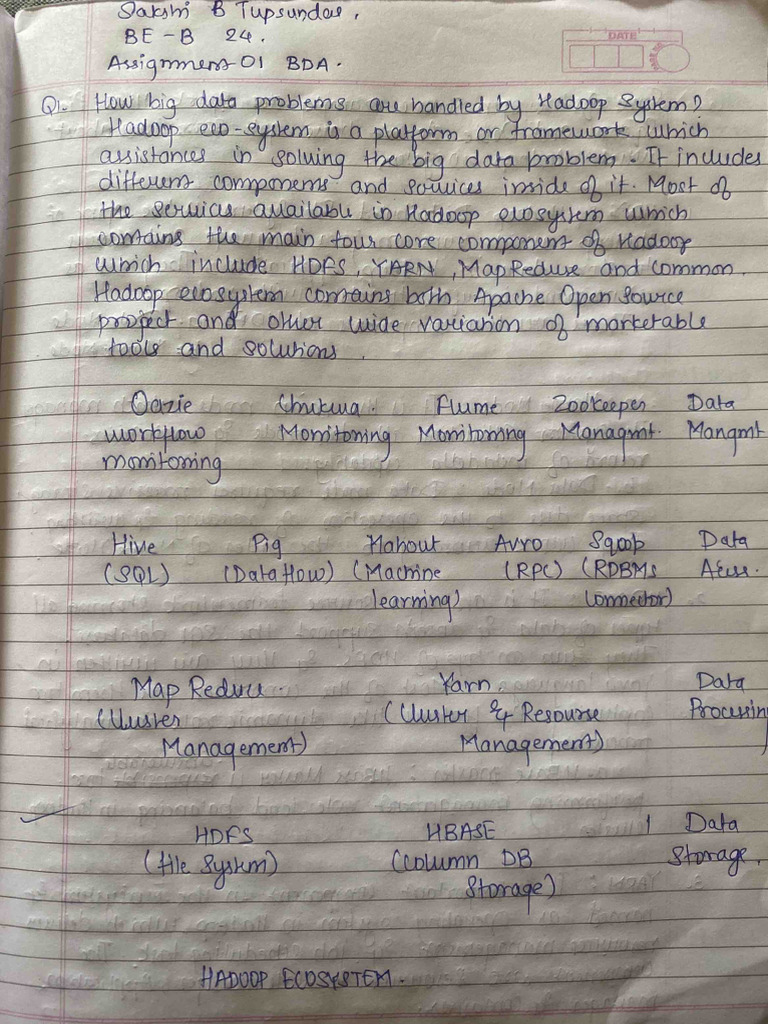 Sakshi B Tupsundar,
BE-B 24.
Assignment 01 BDA.
DATE
Q1. How big data problems are handled by Hadoop System?
Hadoop eco-system is a platform or framework which
assistances in solving the big data problem. It includes
different components and services inside of it. Most of
the services available in Hadoop ecosystem which
contains the main four core component of Hadoop
which include HDFS, YARN, MapReduce and Common.
Hadoop ecosystem contains both Apache Open Source
project and other wide variation of marketable
tools and solutions.
Oozie Chukwa. Flume Zookeeper Data
workflow Monitoring Monitoring Managmt. Mangmt
monitoring
Hive Pig Mahout Avro Sqoop Data
(SQL) (Data flow) (Machine (RPC) (RDBMS Acess.
learning) Connector)
Map Reduce. Yarn. Data
(Cluster (Cluster & Resourse Processing
Management) Management)
HDFS HBASE Data
(File System) (Column DB Storage.
Storage)
HADOOP ECOSYSTEM.